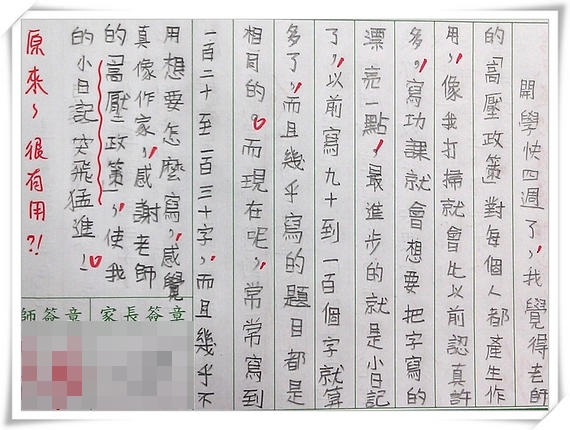 開學快四週了,我覺得老師
的「高壓政策」對每個人都產生作
用,像我打掃就會比以前認真許
多,寫功課就會想要把字寫的
漂亮一點,最進步的就是小日記
了,以前寫九十到一百個字就算
多了,而且幾乎寫的題目都是
相同的。而現在呢,常常寫到
一百二十至一百三十字,而且幾乎不
用想要怎麼寫,感覺
真像作家,感謝老師
的「高壓政策」,使我
的小日記突飛猛進!。
原來,很有用?!
家長簽章
師簽章